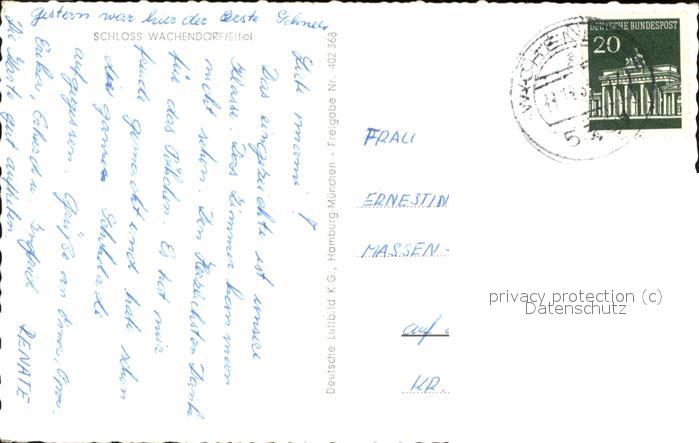 Gestern war hier der erste Schnee
SCHLOSS WACHENDORF/Eifel
Liebe Mami!
Das eingerahmte ist unsere
Klasse. Das Zimmer kann man
nicht sehen. Den Herzlichsten Dank
für das Päckchen. Es hat mir
Freude gemacht und habe schon
die ganze Schokolade
aufgegessen. Grüße an Oma, Opa,
Ingrid
Die Karte gut aufheben
RENATE
Deutsche Luftbild K G., Hamburg-München - Freigabe Nr. 402 368
DEUTSCHE BUNDESPOST
20
FRAU
ERNESTIN
MASSEN-
auf
KR.
privacy protection (c)
Datenschutz